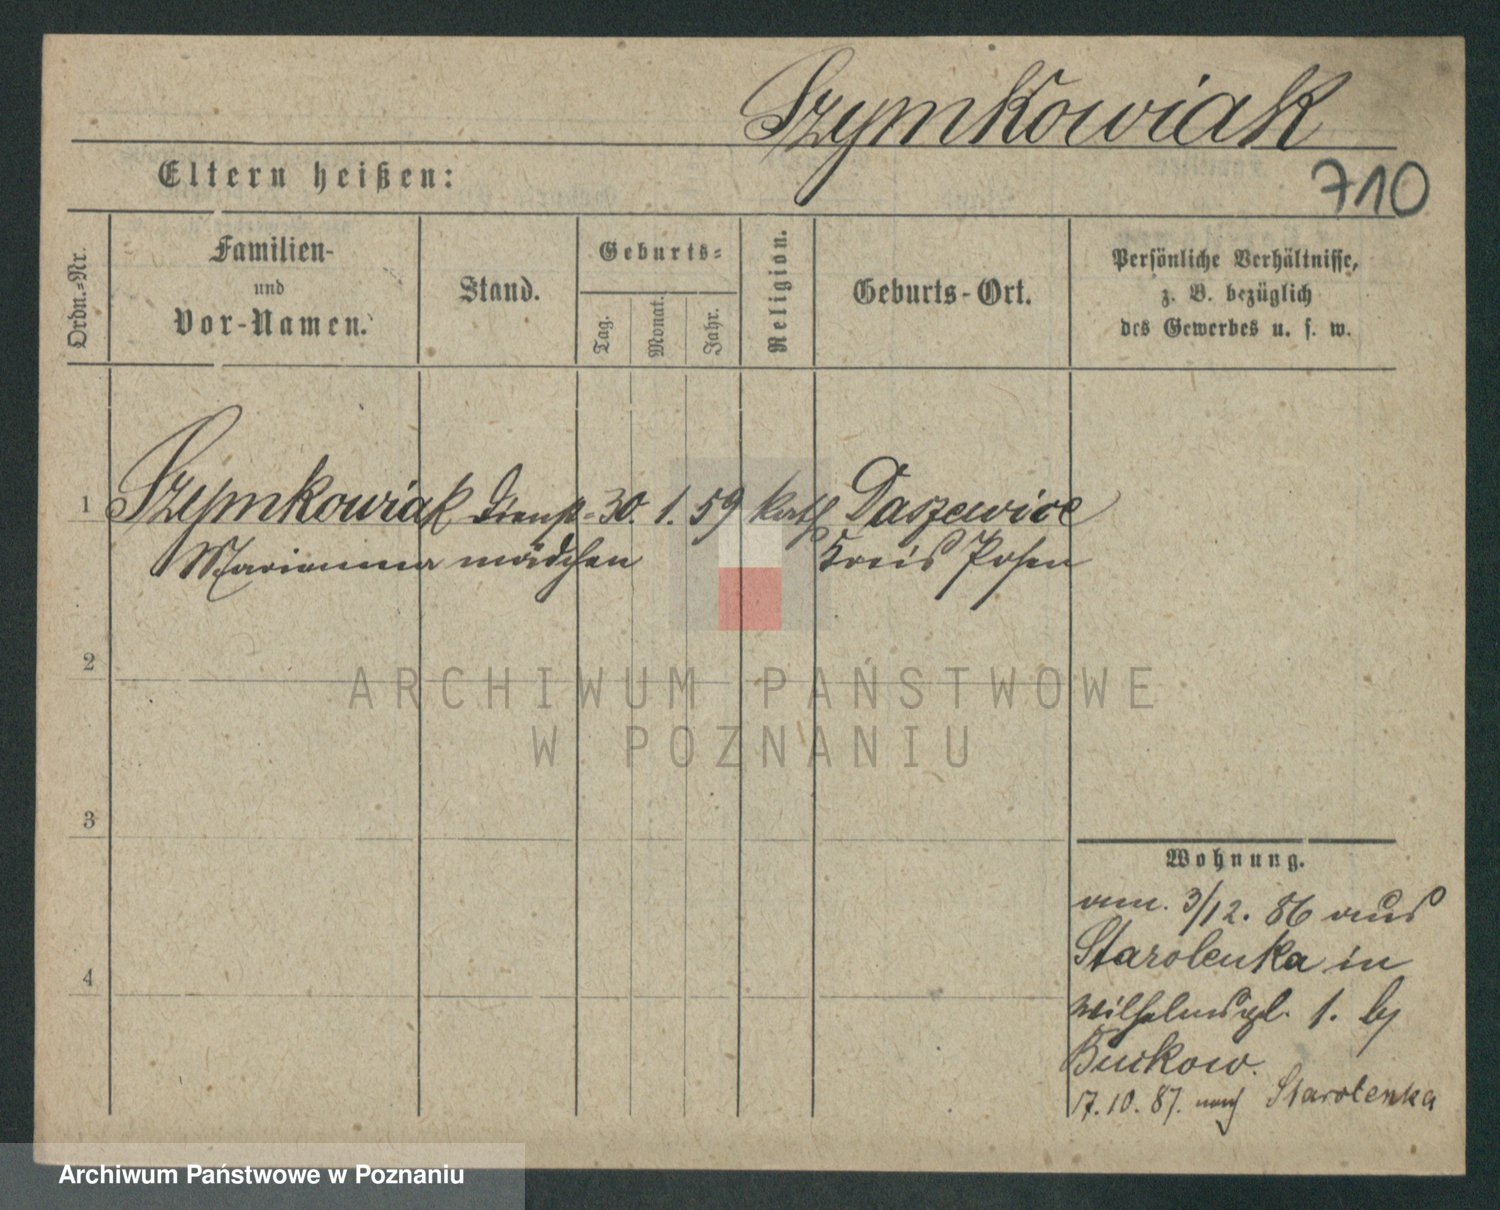 Szymkowiak
710
Eltern heißen:
Ordn.-Nr.
Familien-
und
Vor-Namen.
Stand.
Geburts-
Tag.
Monat.
Jahr.
Religion.
Geburts-Ort.
Persönliche Verhältnisse,
z. B. bezüglich
des Gewerbes u. s. w.
1 Szymkowiak Dienst- 30. 1. 59 kath Daszewice
Marianna mädchen Kreis Posen
2
ARCHIWUM PAŃSTWOWE
W POZNANIU
3
4
Wohnung.
3/12. 86 aus
Starolenka in
Wilhelmspl. 1. by
Burkow.
17. 10. 87. nach Starolenka
Archiwum Państwowe w Poznaniu